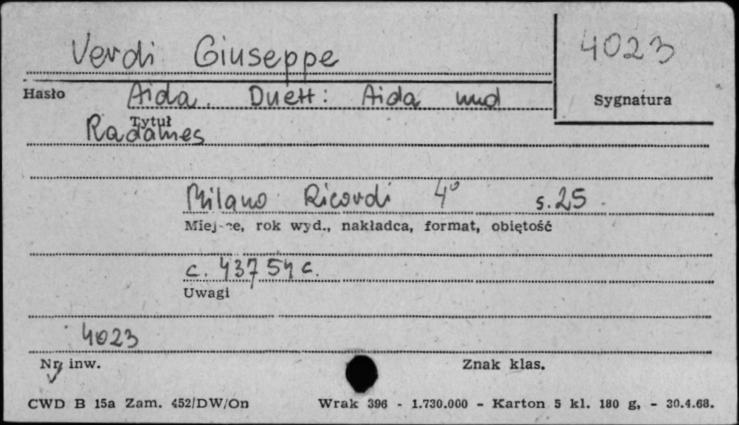 Verdi Giuseppe
4023
Hasło
Aida. Duett: Aida und
Sygnatura
Tytuł
Radames
Milano Ricordi 4° s. 25.
Miejsce, rok wyd., nakładca, format, objętość
c. 43754 c.
Uwagi
4023
Nr inw.
Znak klas.
CWD B 15a Zam. 452/DW/On
Wrak 396 - 1.730.000 - Karton 5 kl. 180 g, - 30.4.68.